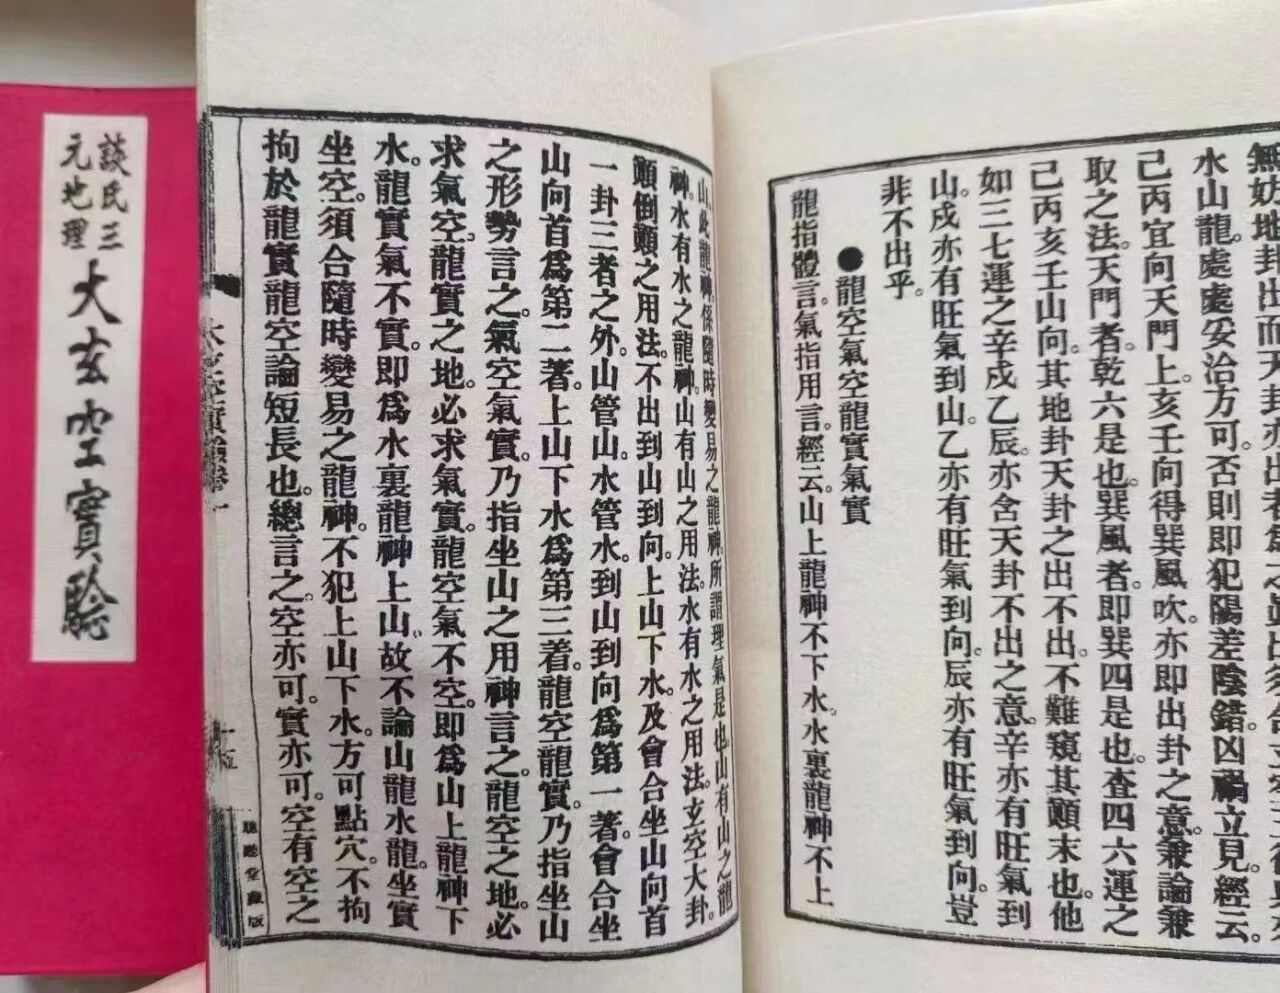 談氏三
元地理
大玄空實驗
無妨地卦出而天卦亦出者為
水山龍處處妥治方可否則即犯陽差陰錯凶禍立見經云
己丙宜向天門上亥壬向得巽風吹亦即出卦之意兼論兼
取之法天門者乾六是也巽風者即巽四是也查四六運之
己丙亥壬山向其地卦天卦之出不出不難窺其顛末也他
如三七運之辛戌乙辰亦含天卦不出之意辛亦有旺氣到
山戌亦有旺氣到山乙亦有旺氣到向辰亦有旺氣到向豈
非不出乎
●龍空氣空龍實氣實
龍指體言氣指用言經云山上龍神不下水水裏龍神不上
山此龍神係隨時變易之龍神所謂理氣是也山有山之龍
神水有水之龍神山有山之用法水有水之用法玄空大卦
顛倒顛之用法不出到山到向上山下水及會合坐山向首
一卦三者之外山管山水管水到山到向為第一著會合坐
山向首為第二著上山下水為第三着龍空龍實乃指坐山
之形勢言之氣空氣實乃指坐山之用神言之龍空之地必
求氣空龍實之地必求氣實龍空氣不空即為山上龍神下
水龍實氣不實即為水裏龍神上山故不論山龍水龍坐實
坐空須合隨時變易之龍神不犯上山下水方可點穴不拘
拘於龍實龍空論短長也總言之空亦可實亦可空有空之
聽聰堂藏版